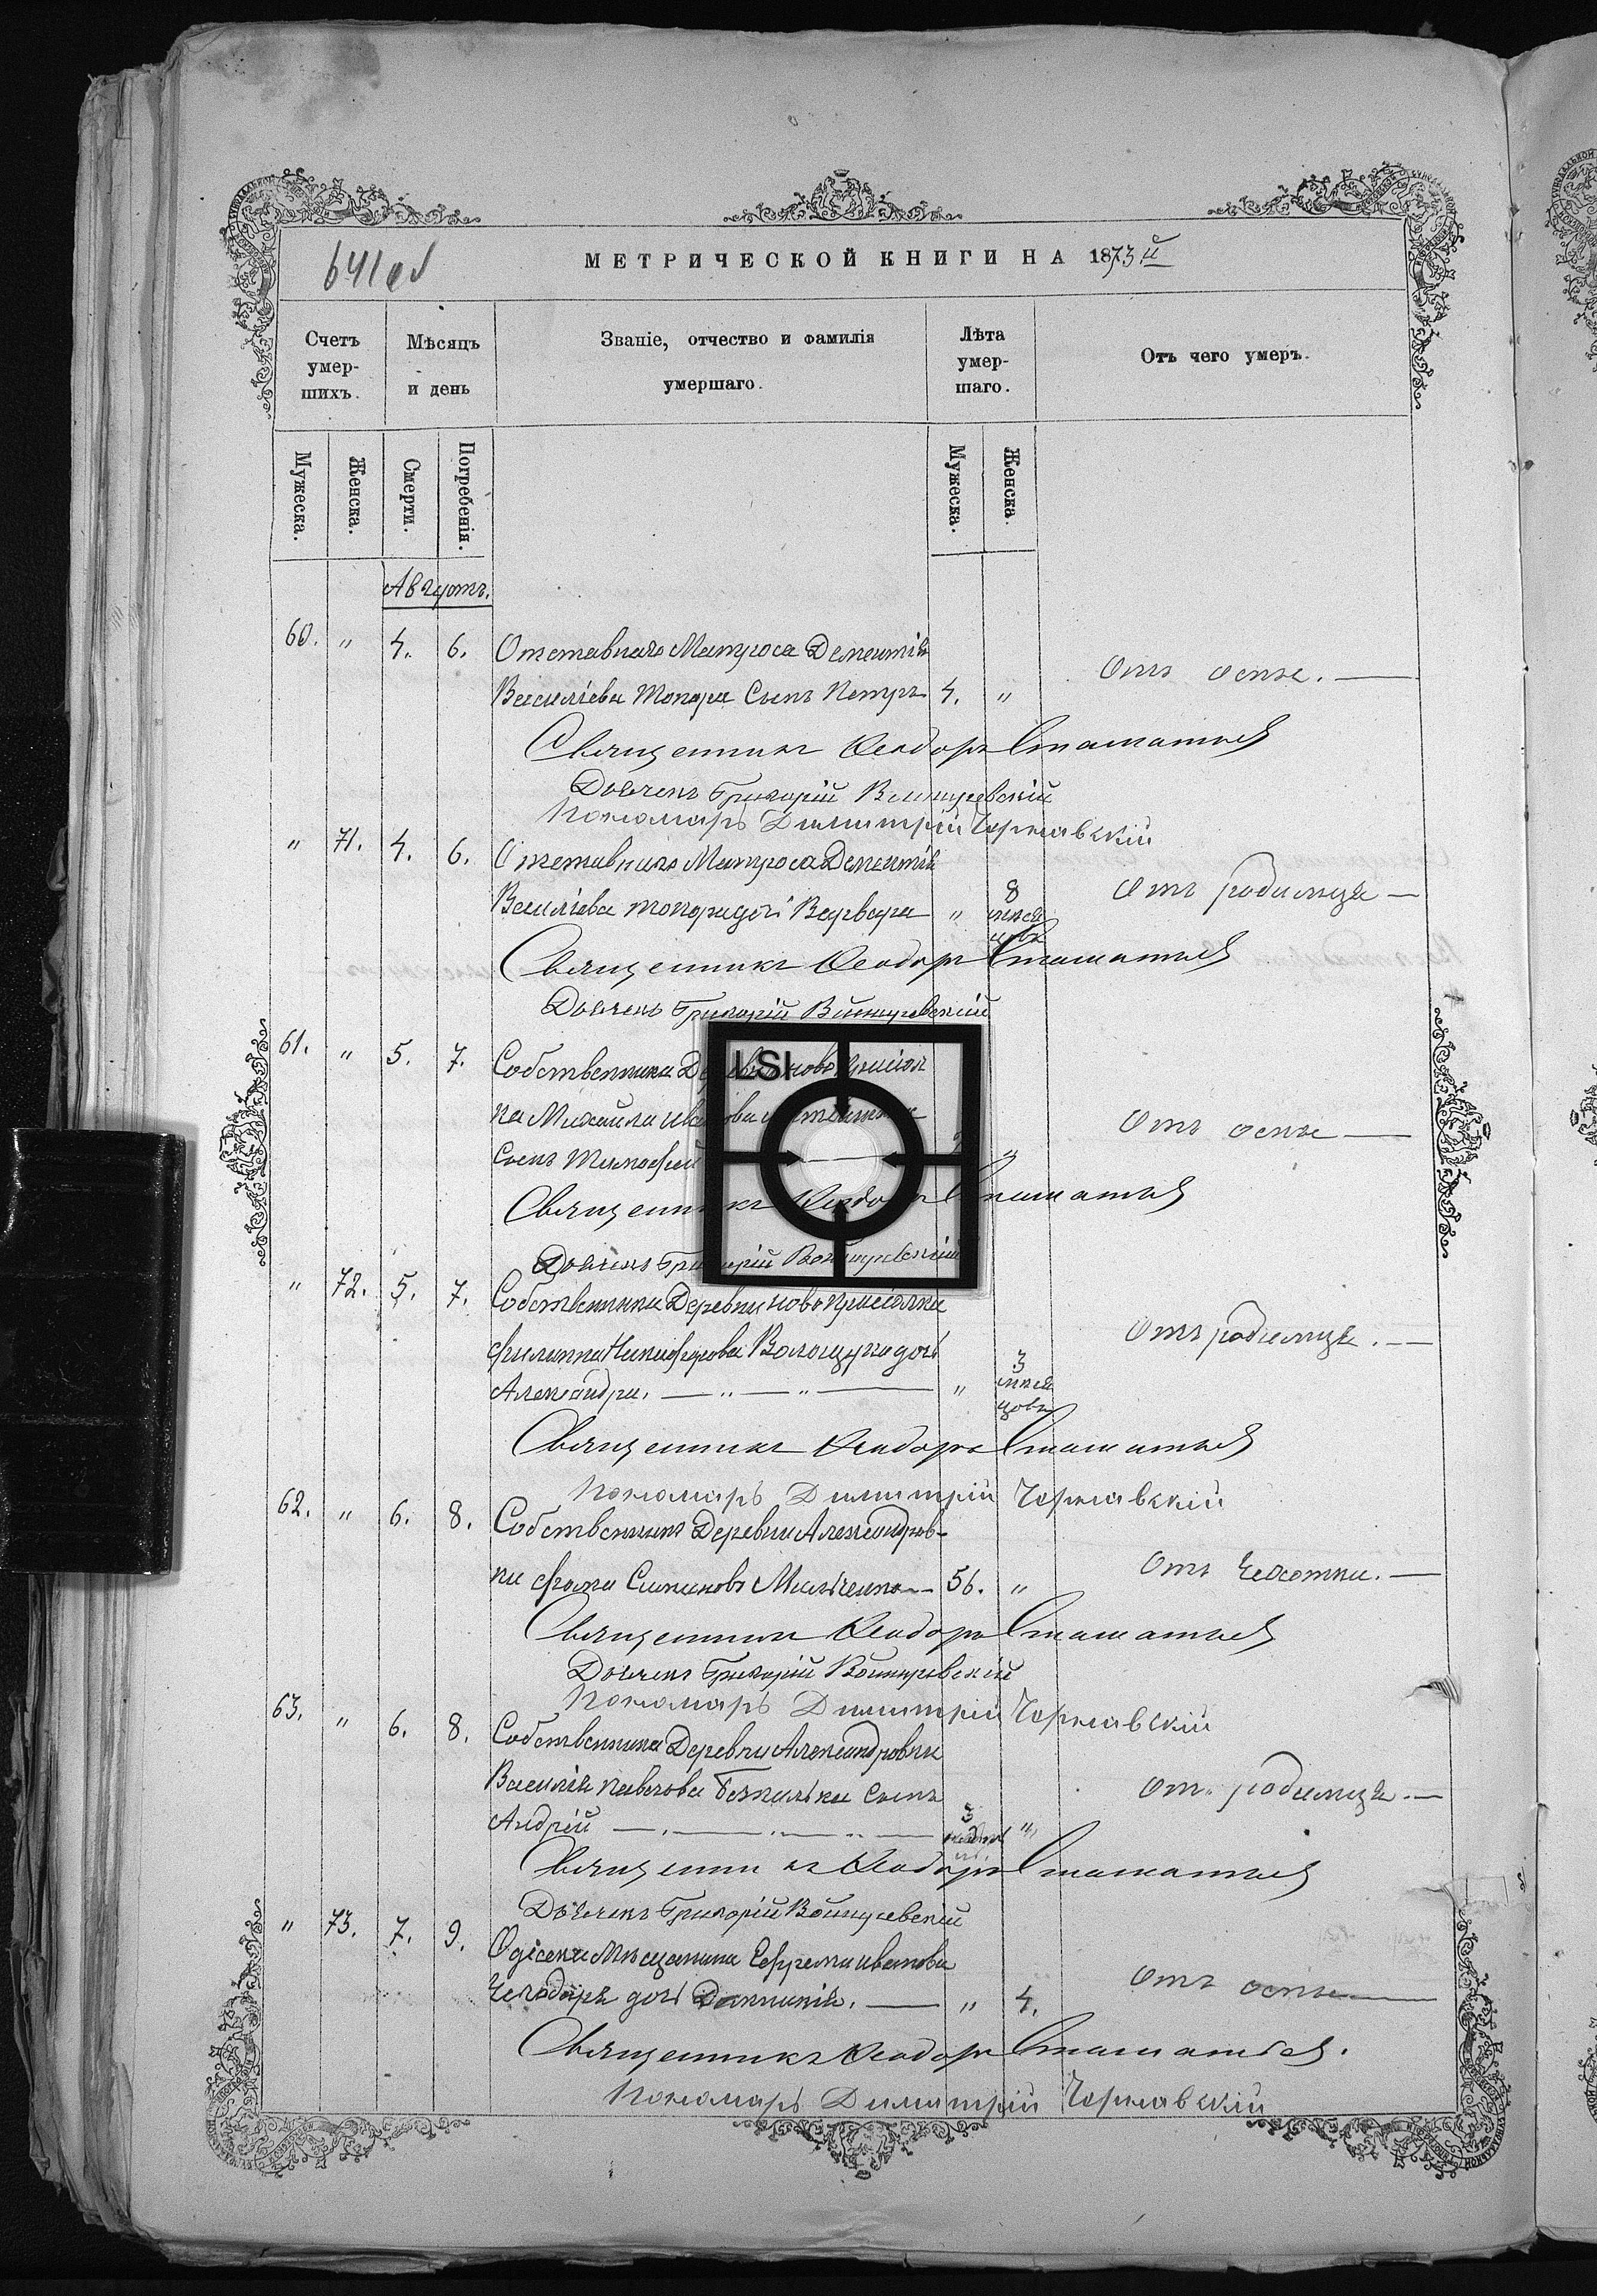 641об
МЕТРИЧЕСКОЙ КНИГИ НА 1873й
Счетъ умер-шихъ.
Мѣсяцъ и день
Званіе, отчество и фамилія умершаго.
Лѣта умер-шаго.
Отъ чего умеръ.
Мужеска.
Женска.
Смерти.
Погребенія.
Мужеска.
Женска.
Августъ.
60. " 4. 6. Отставнаго Матроса Дементія
Василіева Топора Сынъ Петръ 4. " Отъ оспы.
Священникъ Ѳеодоръ Стаматьевъ
Дьячекъ Григорій
Пономарь Димитрій Чернявскій
" 71. 4. 6. Отставнаго Матроса Дементія
Василіева Топора дочь Варвара " 8 мѣся цовъ Отъ родимца
Священникъ Ѳеодоръ Стаматьевъ
Дьячекъ Григорій
61. " 5. 7. Собственника
LSI
на Михаила
Сынъ Тимофей " Отъ оспы
Священникъ Ѳеодоръ Стаматьевъ
Дьячекъ Григорій
" 72. 5. 7. Собственника Деревни
Филиппа Никифорова Волощука дочь
Александра. " 3 мѣся цовъ Отъ родимца.
Священникъ Ѳеодоръ Стаматьевъ
Пономарь Димитрій Чернявскій
62. " 6. 8. Собственникъ Деревни Александров-
ки Фома Симановъ 56. " Отъ Чахотки.
Священникъ Ѳеодоръ Стаматьевъ
Дьячекъ Григорій
Пономарь Димитрій Чернявскій
63. " 6. 8. Собственника Деревни Александровки
Василія Павлова Сынъ
Андрей 3 " Отъ родимца.
Священникъ Ѳеодоръ Стаматьевъ
Дьячекъ Григорій
" 73. 7. 9. Одескаго Мѣщанина Ефрема Иванова
дочь Домникія. " 4. Отъ оспы
Священникъ Ѳеодоръ Стаматьевъ.
Пономарь Димитрій Чернявскій